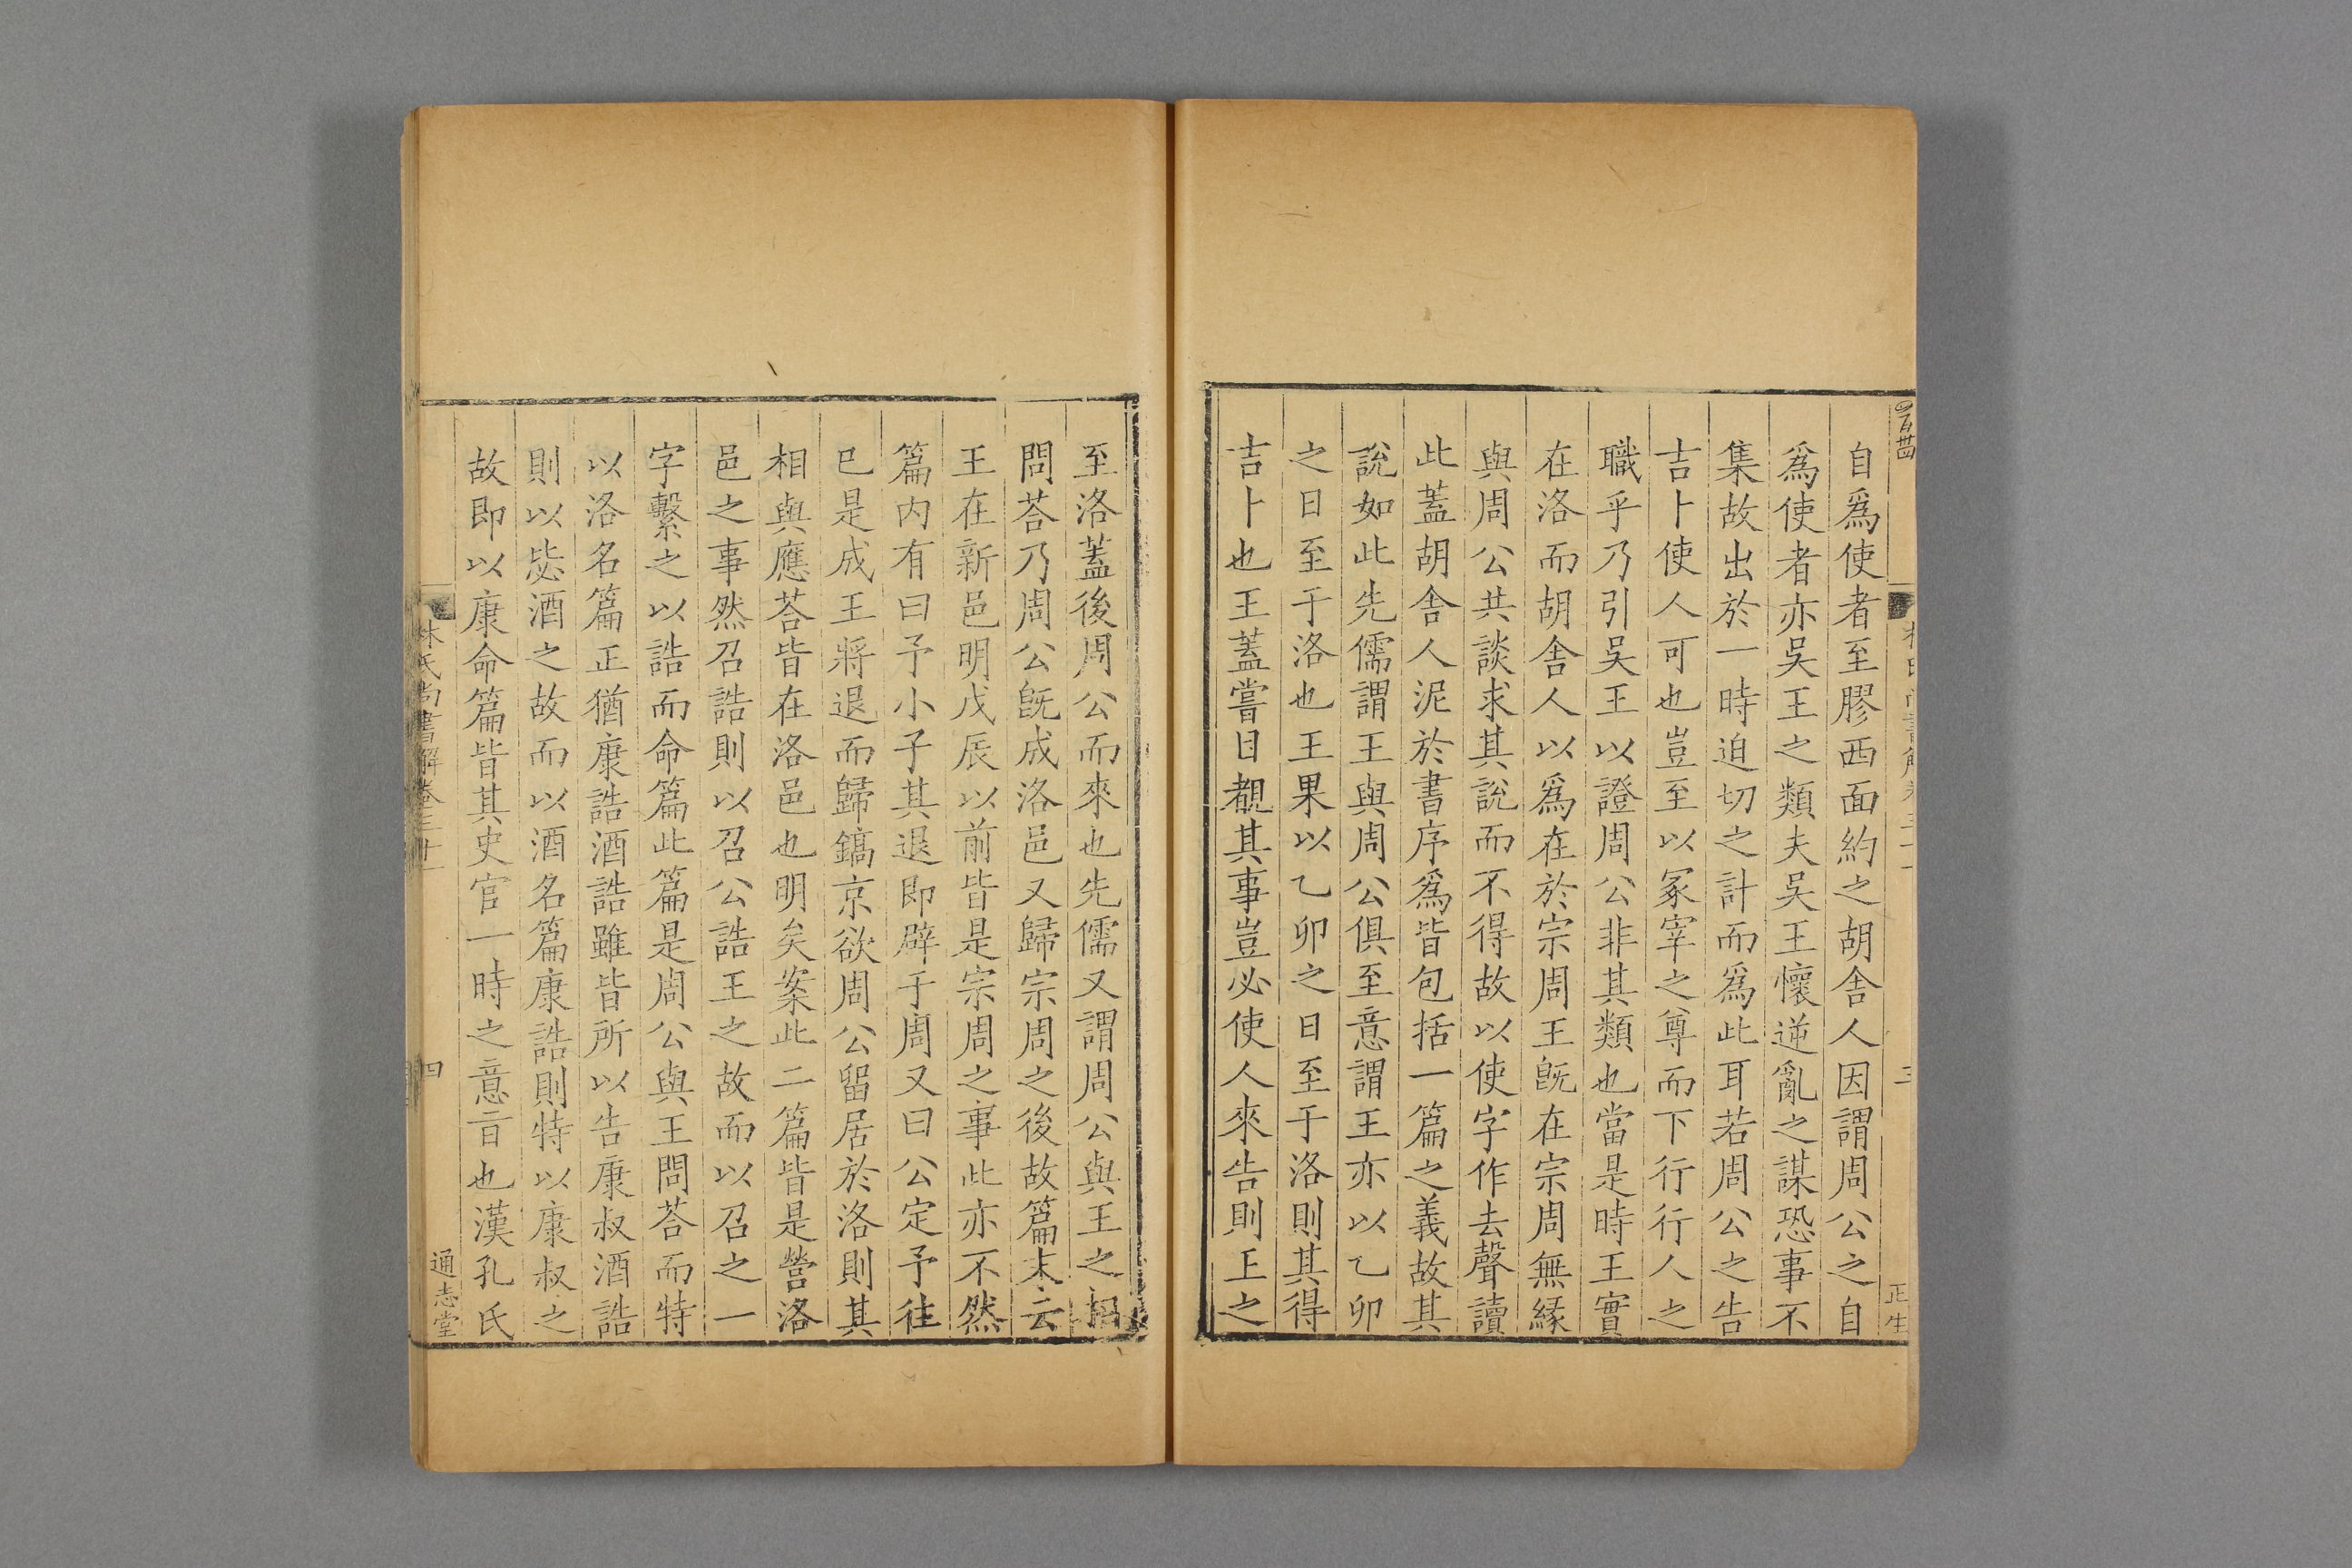 自爲使者至膠西面約之胡舎人因謂周公之自
爲使者亦吳王之類夫吳王懷逆亂之謀恐事不
集故出於一時迫切之計而爲此耳若周公之告
吉卜使人可也豈至以冢宰之尊而下行行人之
職乎乃引吳王以證周公非其類也當是時王實
在洛而胡舎人以爲在於宗周王旣在宗周無縁
與周公共談求其說而不得故以使字作去聲讀
此蓋胡舎人泥於書序爲皆包括一篇之義故其
說如此先儒謂王與周公俱至意謂王亦以乙卯
之日至于洛也王果以乙卯之日至于洛則其得
吉卜也王蓋嘗目覩其事豈必使人來告則王之
正生
至洛蓋後周公而來也先儒又謂周公與王之相
問荅乃周公旣成洛邑又歸宗周之後故篇末云
王在新邑明戊辰以前皆是宗周之事此亦不然
篇内有曰予小子其退即辟于周又曰公定予往
巳是成王將退而歸鎬京欲周公留居於洛則其
相與應荅皆在洛邑也明矣案此二篇皆是營洛
邑之事然召誥則以召公誥王之故而以召之一
字繫之以誥而命篇此篇是周公與王問荅而特
以洛名篇正猶康誥酒誥雖皆所以告康叔酒誥
則以毖酒之故而以酒名篇康誥則特以康叔之
故即以康命篇皆其史官一時之意言也漢孔氏
林氏尚書解卷三十一
四
通志堂